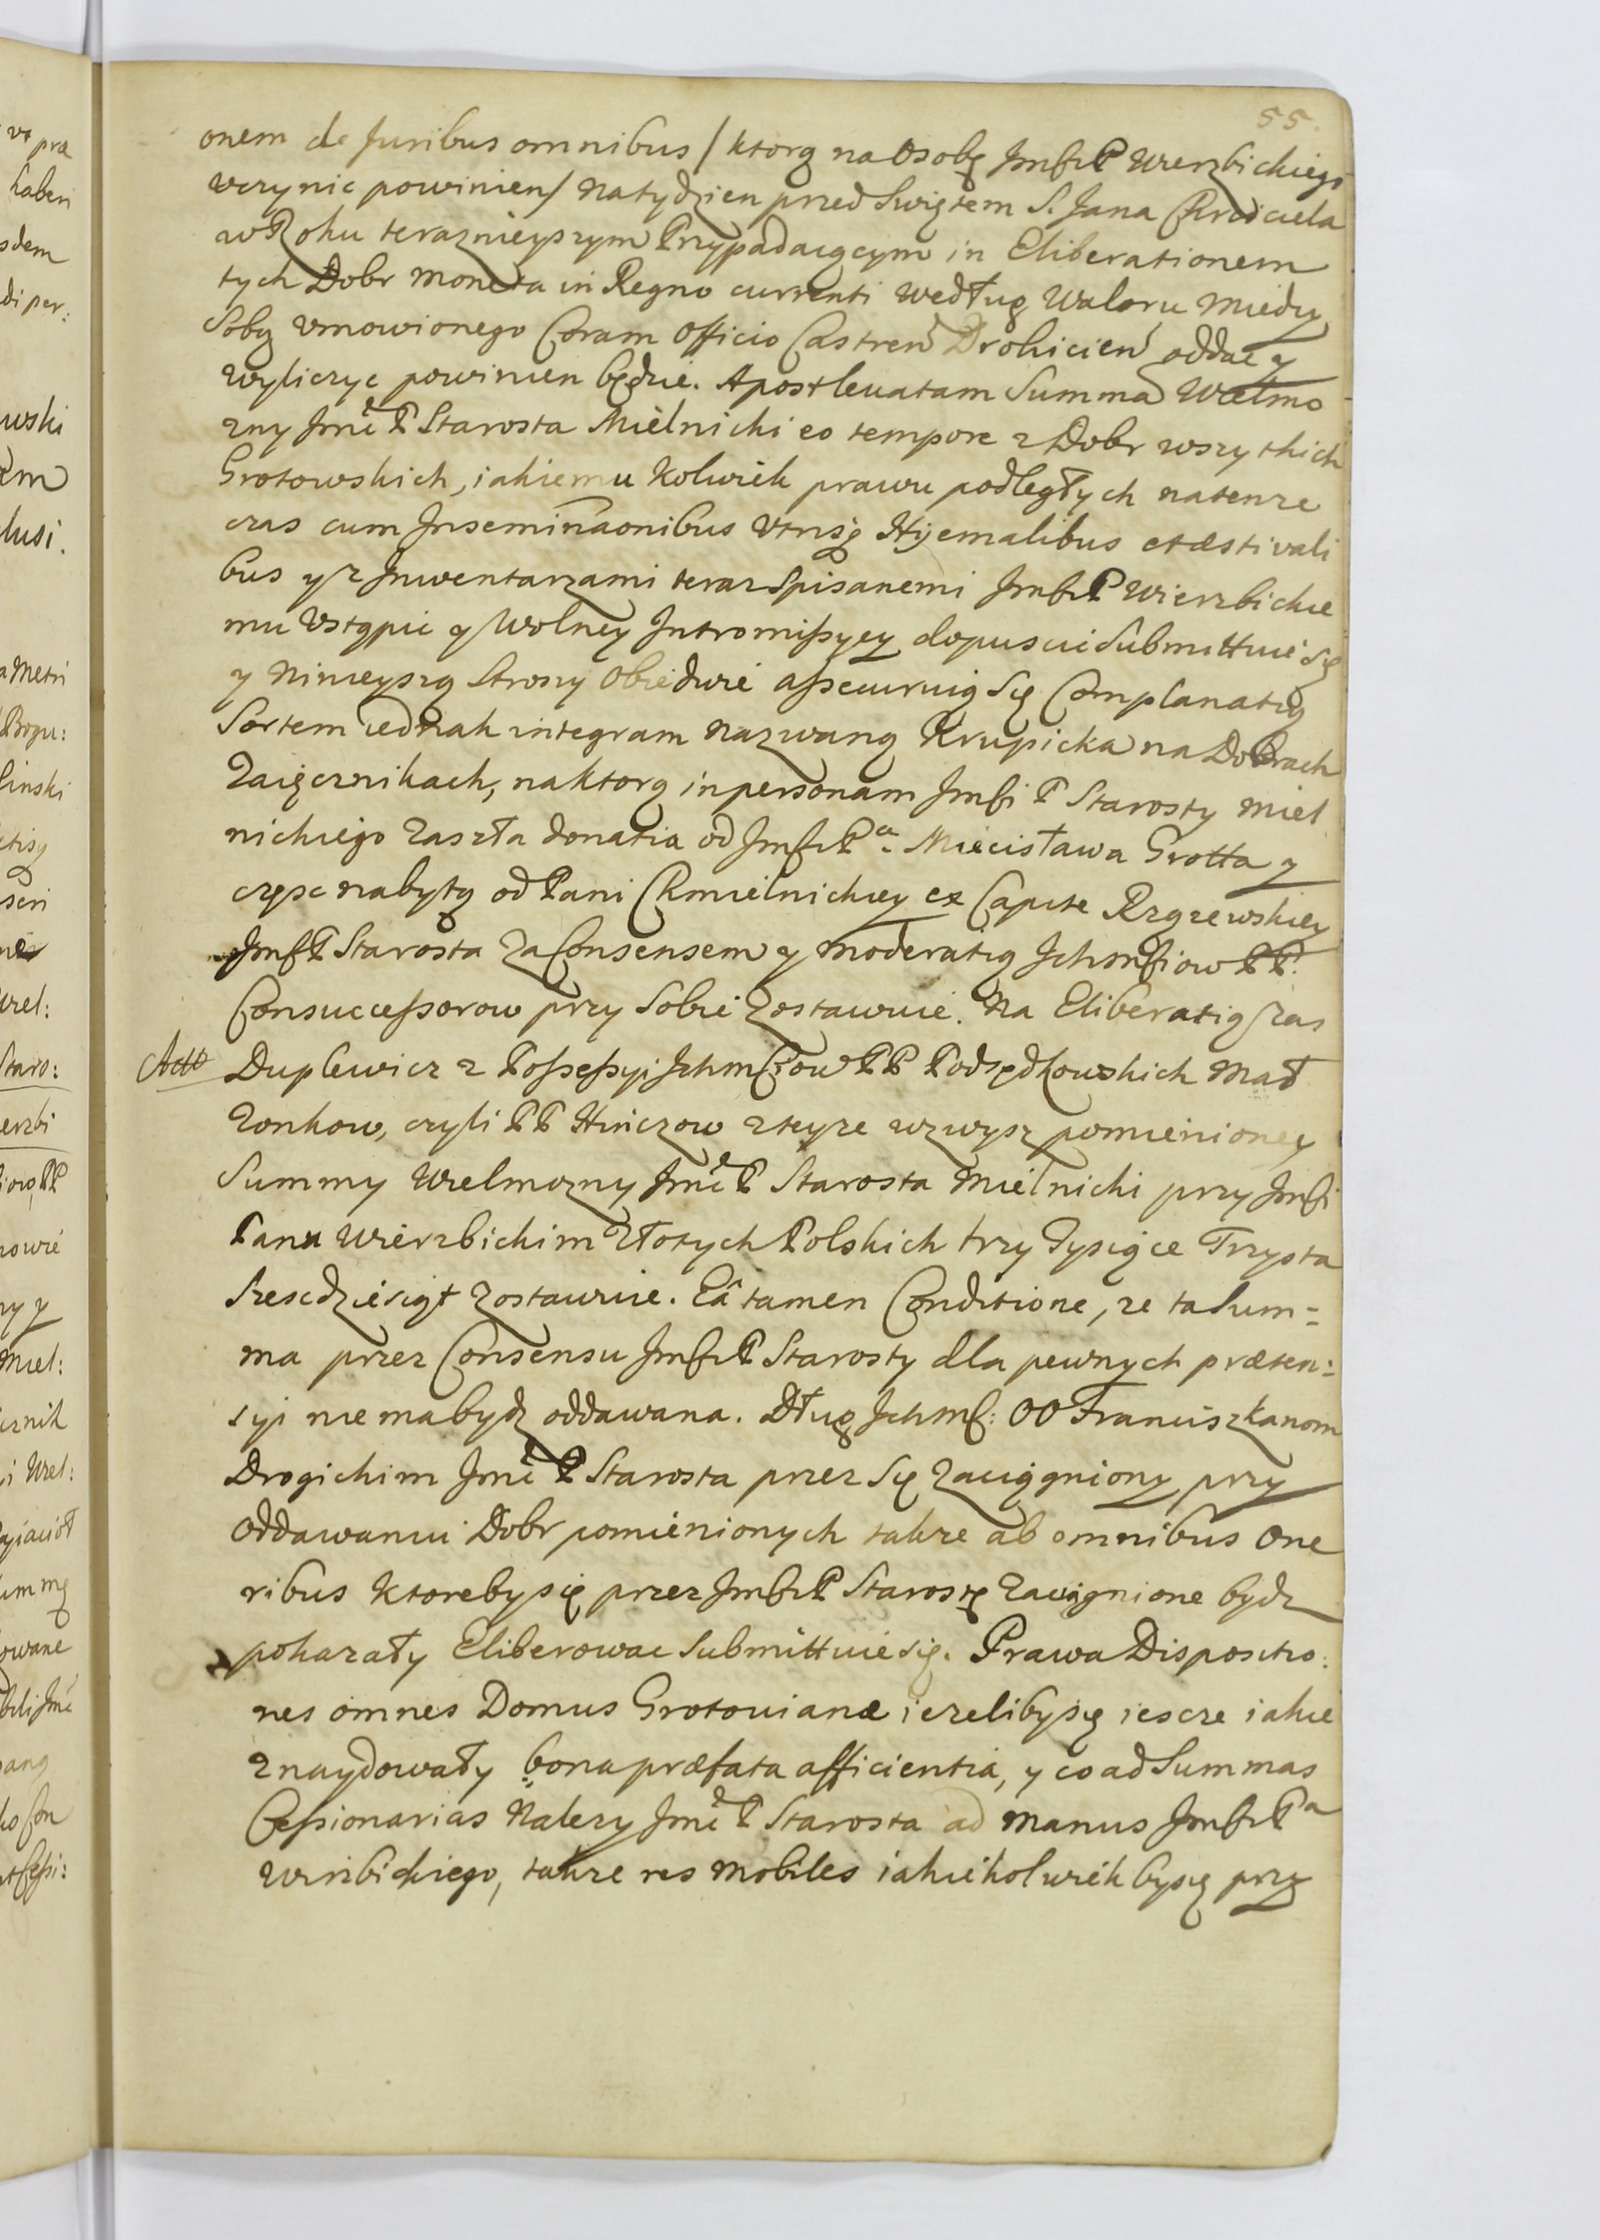 55.
onem de Juribus omnibus / ktorą na Osobę Jmści P Wierzbickiego
vczynic powinien / na tydzien przed Swiętem S. Jana Chrzciciela
w Roku teraznieyszym Przypadaiącym in Eliberationem
tych Dobr moneta in Regno currenti według Waloru między
Sobą vmowionego Coram Officio Castren Drohicien oddac y
wyliczyc powinien będzie. A post levatam Summa Wielmo
zny Jmć P Starosta Mielnicki eo tempore z Dobr wszytkich
Grotowskich, iakiemu kolwiek prawu podległych natenze
czas cum Inseminaonibus vtrisq Hyemalibus et æstivali
bus y z Inwentarzami teraz Spisanemi Jmści P Wierzbickie
mu vstąpic y Wolney Intromissyey dopuscic Submittuie się
y Ninieyszą Strony Obiedwie assecuruią Się Complanatią
Sortem iednak integram nazwaną Krupicka na Dobrach
Zaięcznikach, na ktorą in personam Jmści P Starosty Miel
nickiego zaszła donatia od Jmści Pa. Miecisława Grotta y
częsc nabytą od Pani Chmielnickiey ex Capite Rzązewskiey
Jmść P Starosta za Consensem y moderatią Ichmściow PP.
Consuccessorow przy Sobie zostawuie. Na Eliberatią zas
Duplewicz z Possessyi Ichmściow PP Podsędkowskich Mał
zonkow, czyli PP Hinczow z teyze wzwysz pomienioney
Summy Wielmozny Jmć P Starosta Mielnicki przy Jmści
Panu Wierzbickim Złotych Polskich trzy Tysiące Trzysta
Szescdziesiąt zostawuie. Eâ tamen Conditione, ze ta Sum=
ma przez Consensu Jmści P Starosty dla pewnych præten:
syi nie ma bydz oddawana. Dług Ichmś: OO Franciszkanom
Drogickim Jmć P Starosta przez Się zaciągniony przy
Oddawaniu Dobr pomienionych takze ab omnibus One
ribus ktoreby się przez Jmści P Starostę zaciągnione bydz
pokazały Eliberowac Submittuie się. Prawa Dispositio:
nes omnes Domus Grotovianæ iezeliby się iescze iakie
znaydowały bona præfata afficientia, y co ad Summas
Cessionarias Nalezy Jmć P Starosta ad manus Jmści Pa
Wirzbickiego, takze res mobiles iakiekolwiek by się przy